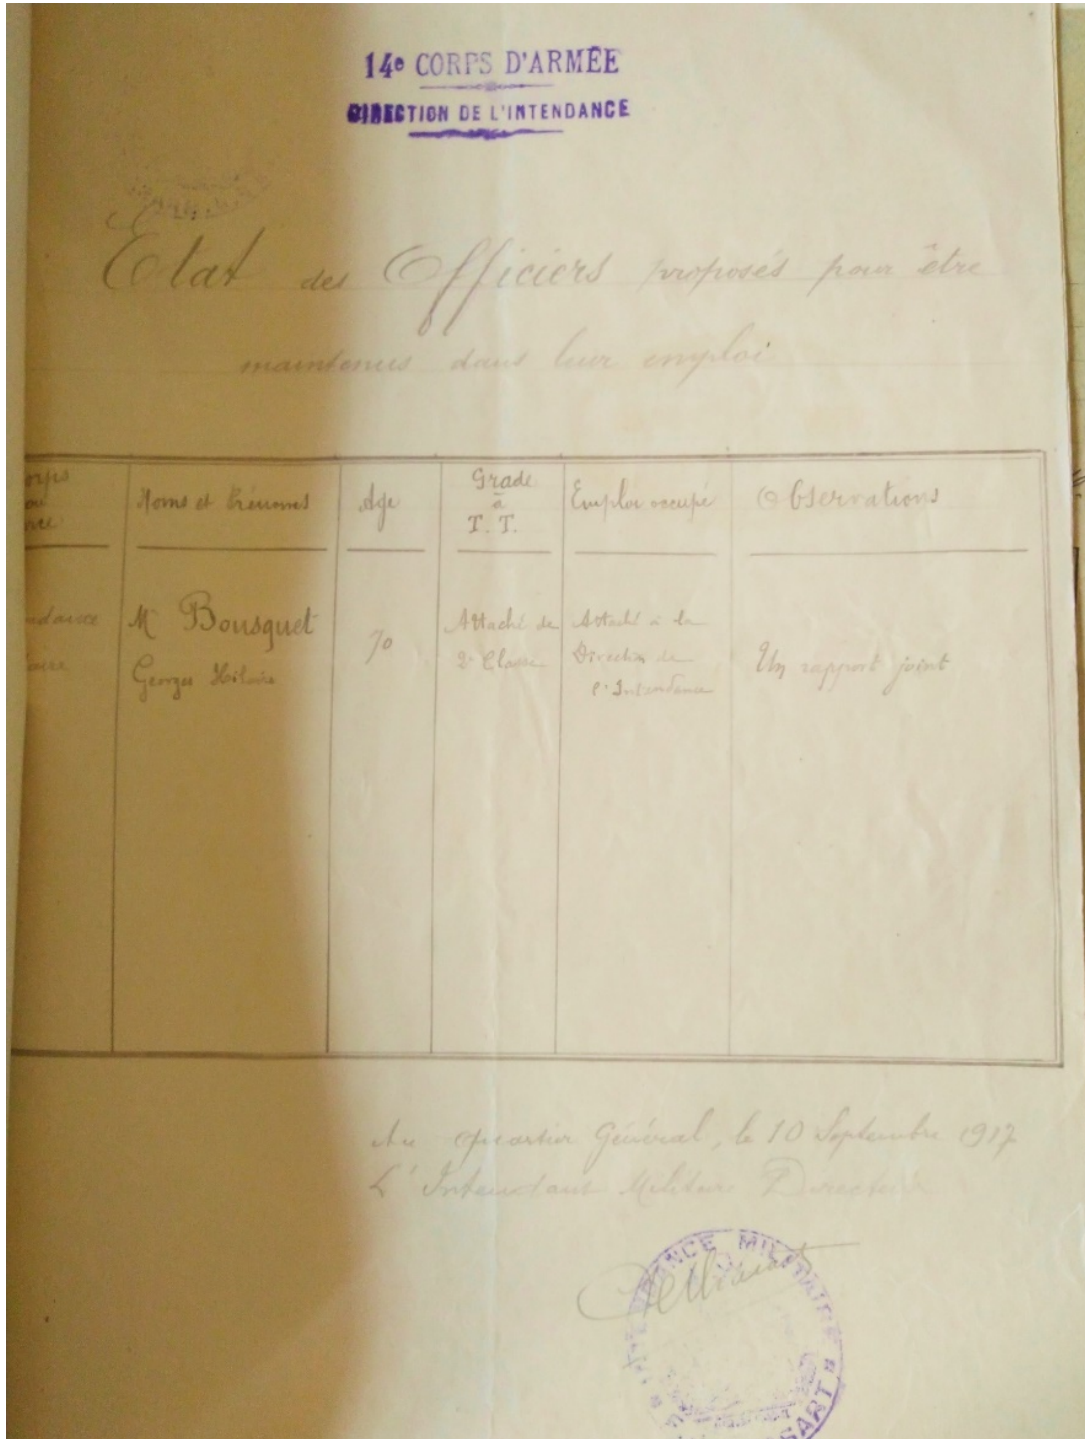 14e CORPS D'ARMÉE
DIRECTION DE L'INTENDANCE
Etat des Officiers proposés pour être
maintenus dans leur emploi
orps
ou
vice
Noms et Prénoms
Age
Grade
à
T. T.
Emploi occupé
Observations
ndance
taire
Mr Bousquet
Georges Hilaire
70
Attaché de
2e Classe
Attaché à la
Direction de
l'Intendance
Un rapport joint
Au Quartier Général, le 10 Septembre 1917
L'Intendant Militaire Directeur
DANCE MILITAIRE